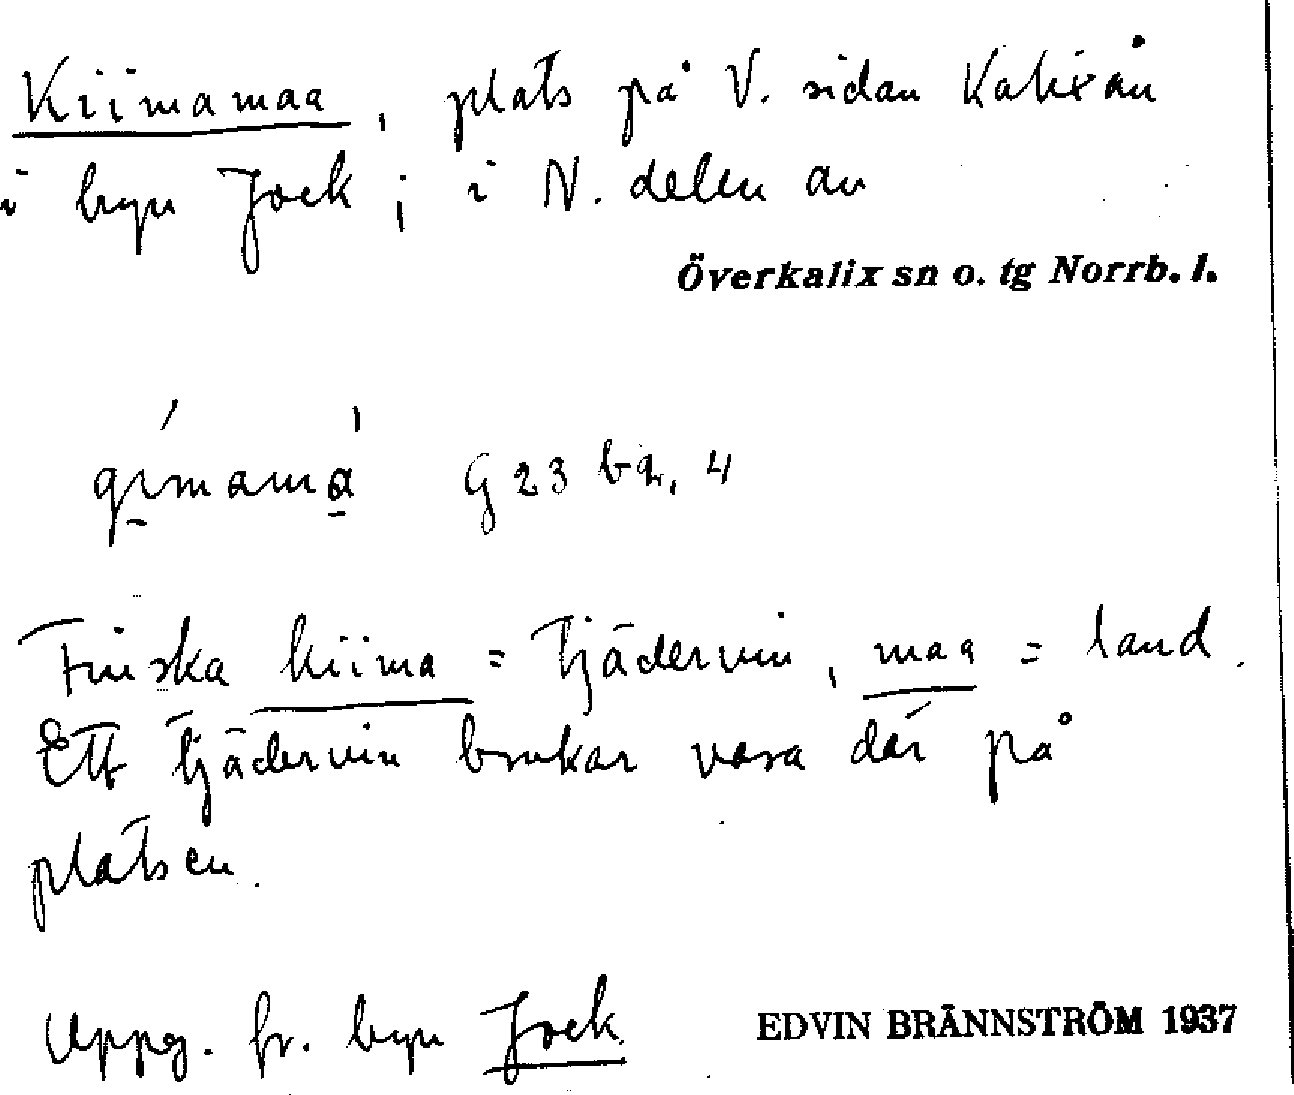 Kiimamaa, plats på V. sidan Kalixän
i byn Jock; i N. delen av
Överkalix sn o. tg Norrb. l.
gímamá G 23 bq, 4
Finska kiima = Tjädervin, maa = land.
Ett tjädervin brukar vara där på
platsen.
Uppg. fr. byn Jock
EDVIN BRÄNNSTRÖM 1937